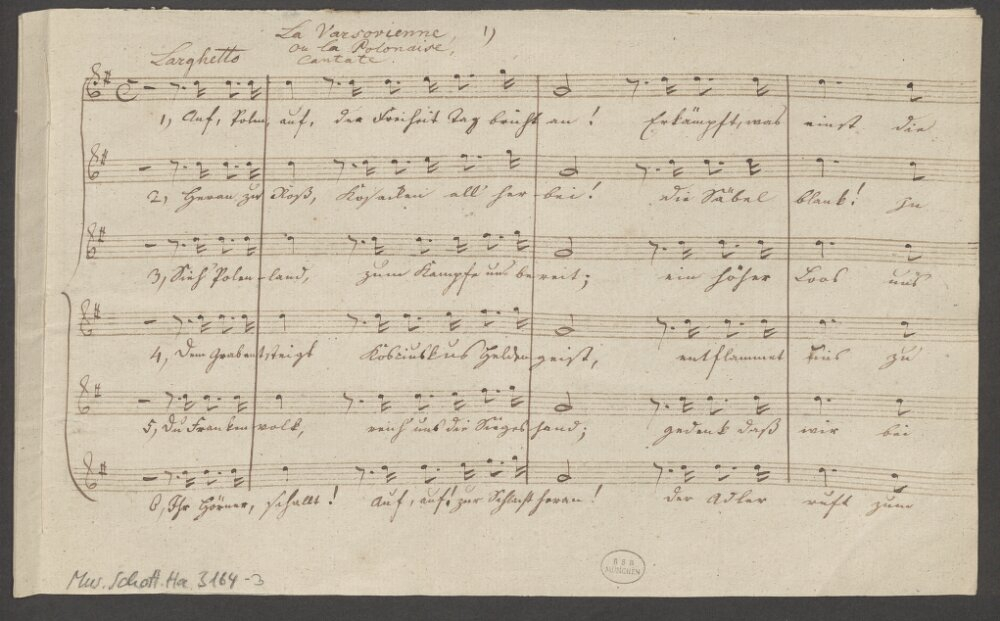 La Varsovienne, 1)
ou la Polonaise,
Cantate.
Larghetto
1, Auf, Polen, auf, der Freiheit Tag bricht an! Erkämpft, was einst die
2, Heran zu Roß, Kosacken all' herbei! die Säbel blank! In
3, Sieh' Polen-land, zum Kampfe uns bereit; ein höher Loos uns
4, Dem Grab entsteigt Kosciuskus Heldengeist, entflammet zu
5, Du Frankenvolk, reich uns die Siegeshand; gedenk daß wir bei
6, Ihr Hörner, schallt! Auf, auf! zur Schlacht heran! der Adler ruft zum
Mus. Schott. Ha 3164-3
BSB
MÜNCHEN